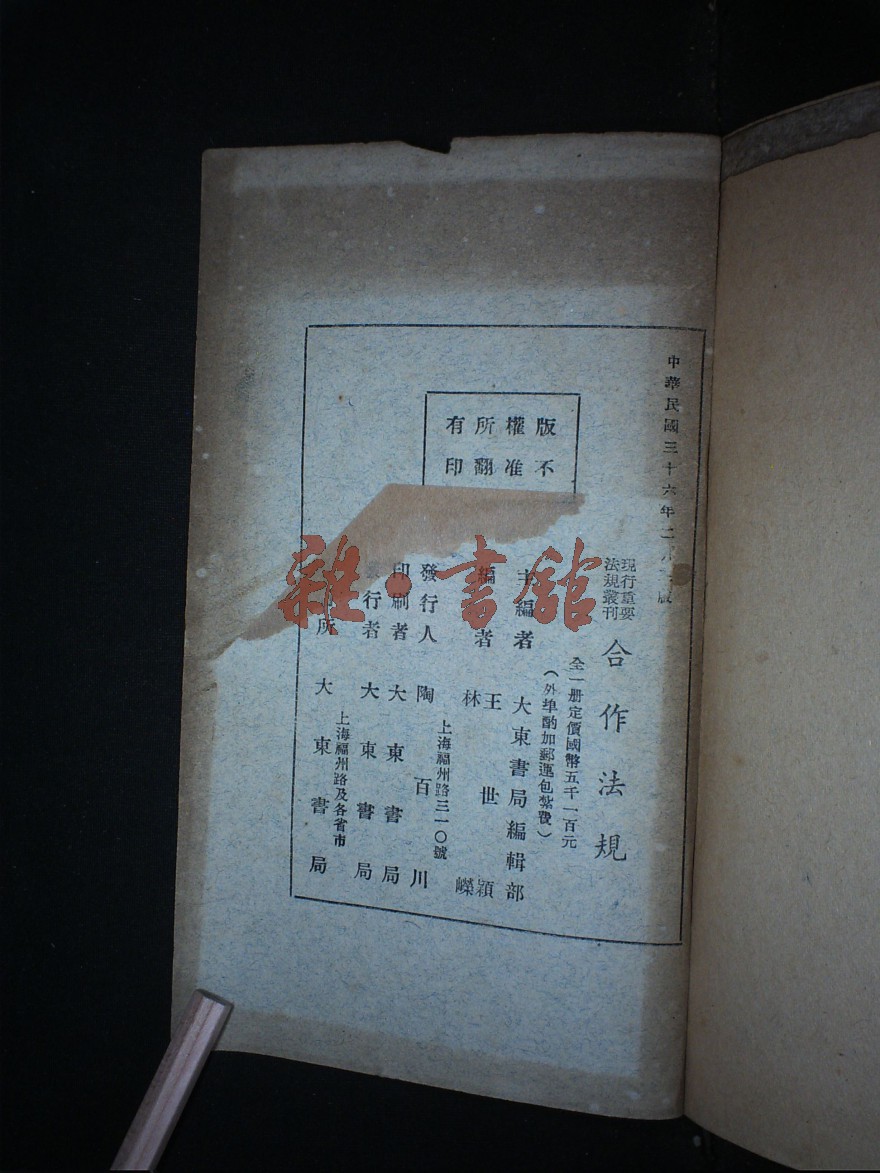 中華民國三十六年二月 版
現行重要
法規叢刊
合作法規
全一册定價國幣五千一百元
(外埠酌加郵運包紮費)
版權所有
不准翻印
主編者 大東書局編輯部
編者 王世穎
林嶸
發行人 陶百川
上海福州路三一〇號
印刷者 大東書局
行者 大東書局
上海福州路及各省市
所 大東書局
雜·書館